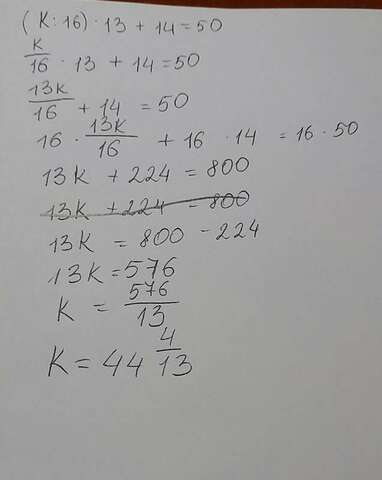 (K:16)·13+14=50
K/16·13+14=50
13K/16+14=50
16·13K/16+16·14=16·50
13K+224=800
13K+224=800
13K=800-224
13K=576
K=576/13
K=44 4/13